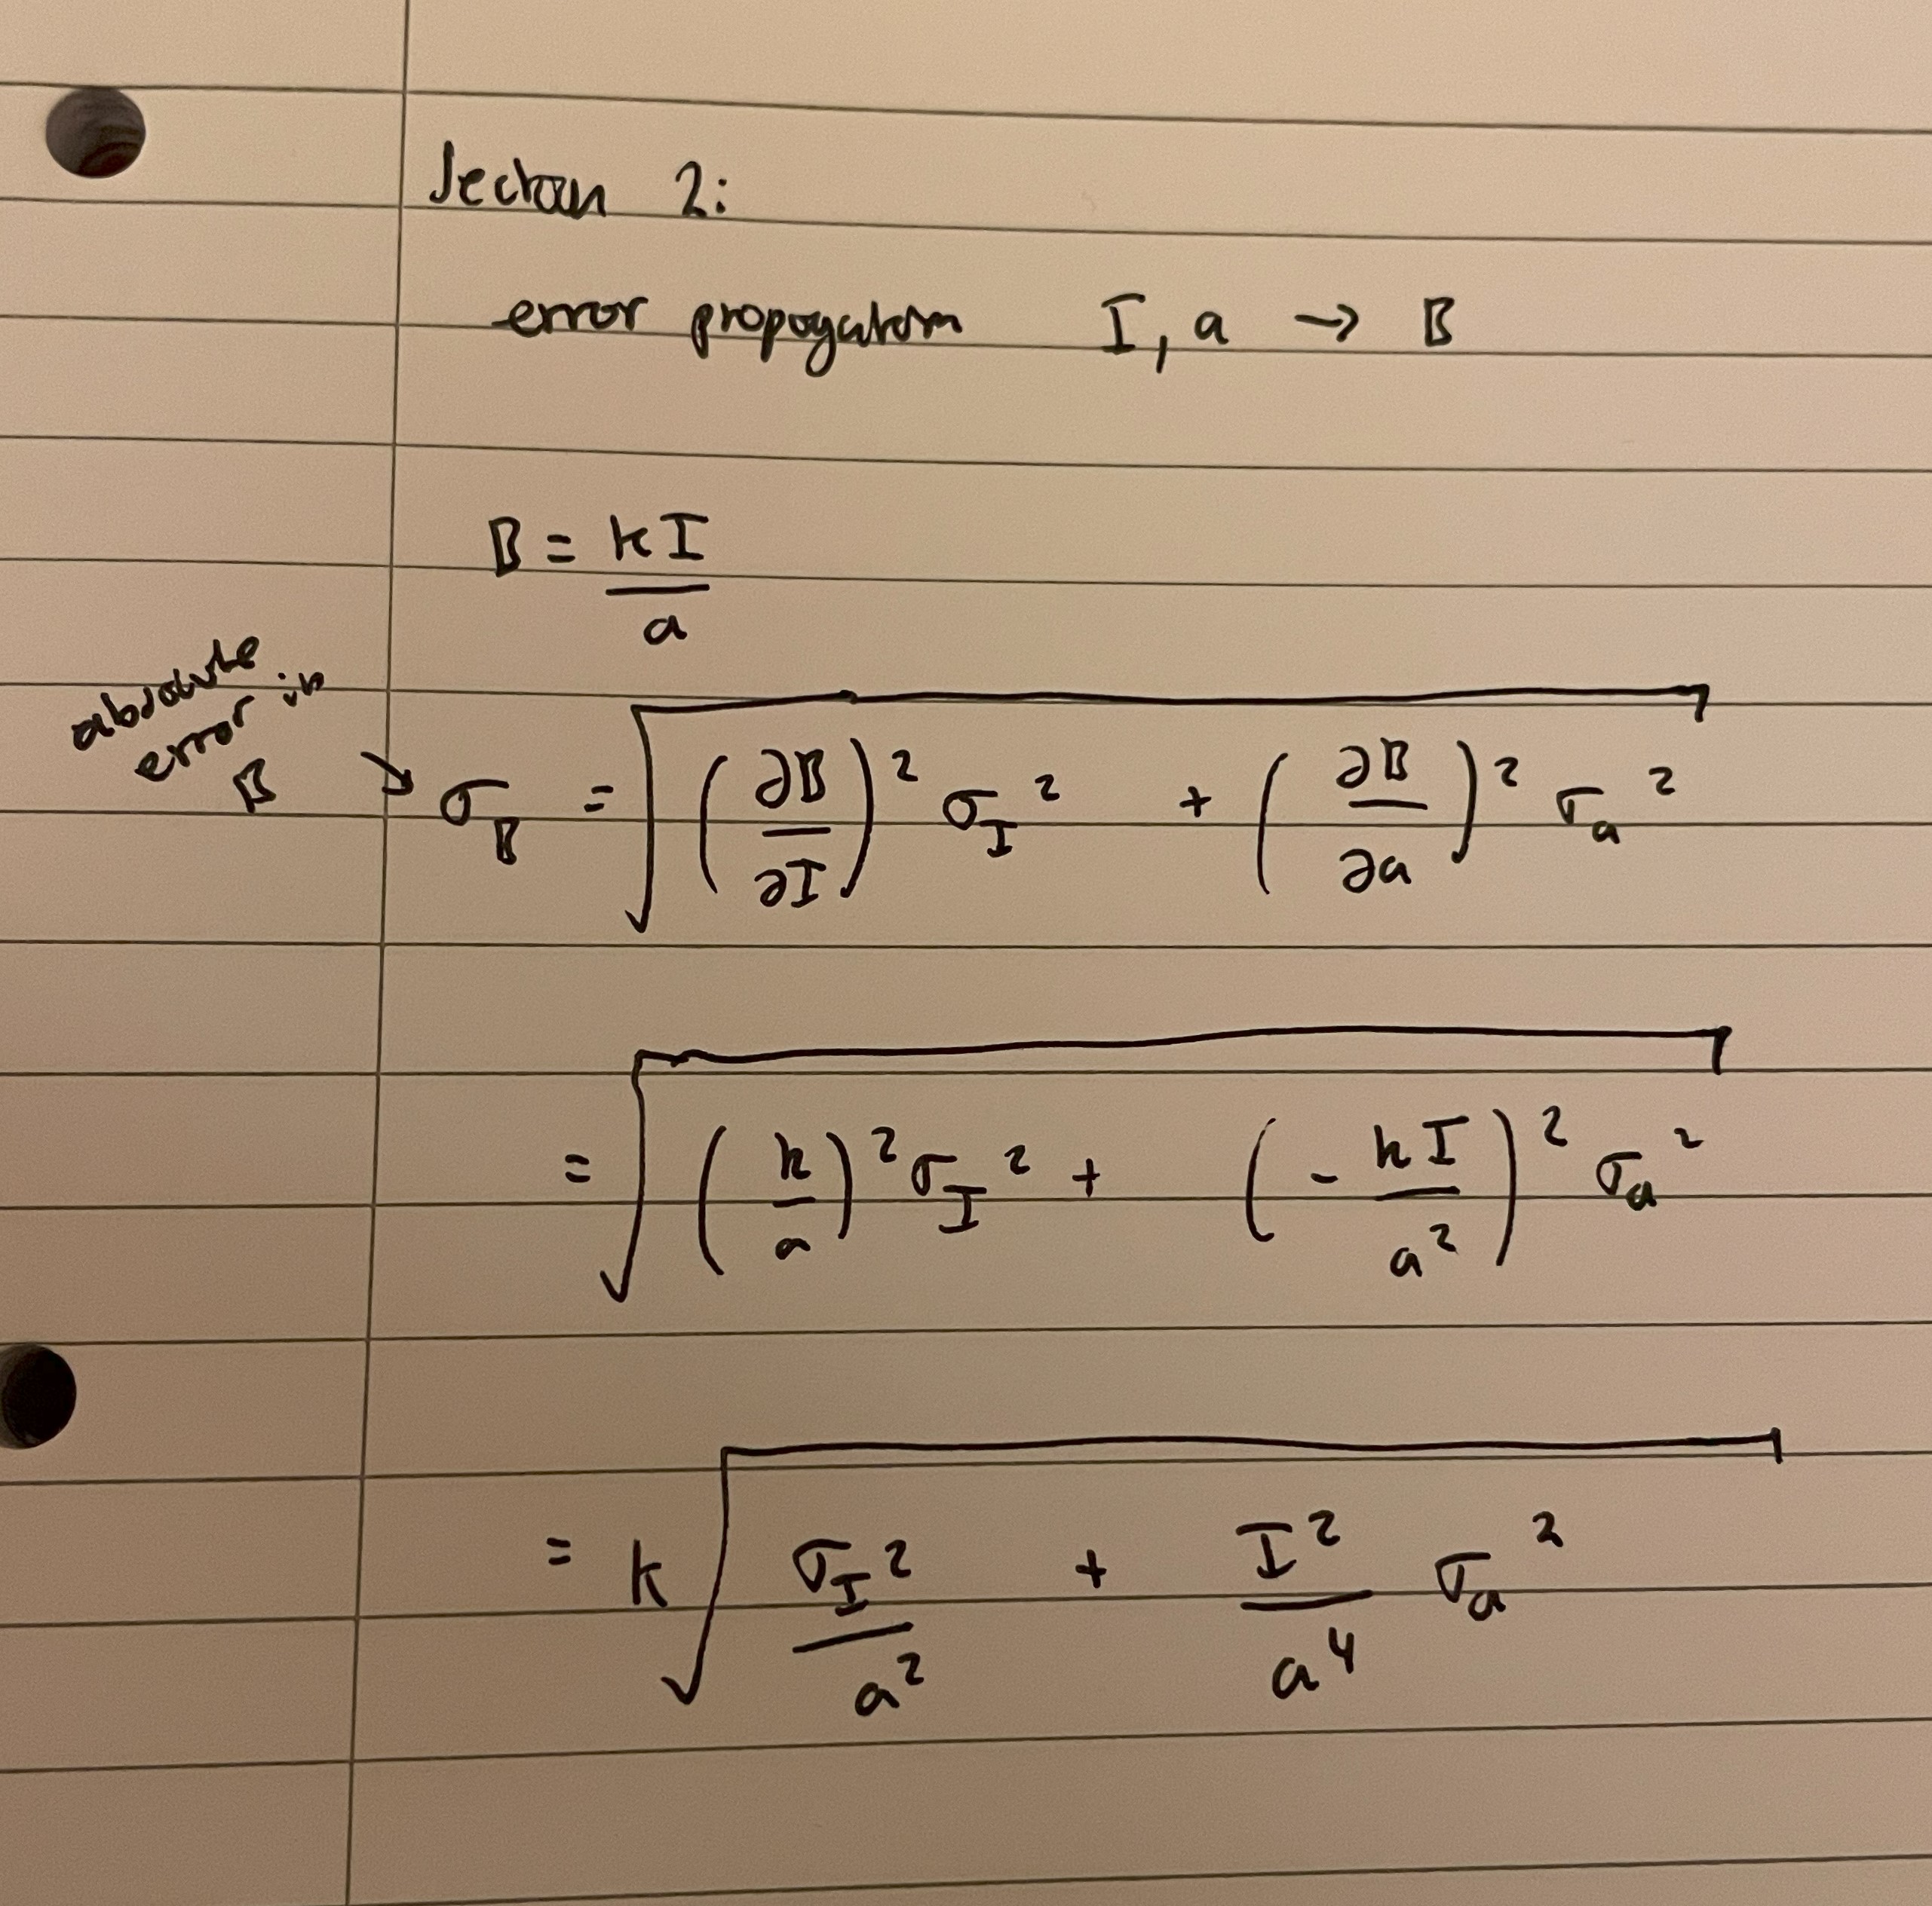 Section 2:
error propogation I, a → B
B = kI / a
absolute
error in
B ↘
σ_B = √( (∂B/∂I)² σ_I² + (∂B/∂a)² σ_a² )
= √( (k/a)² σ_I² + (- kI/a²)² σ_a² )
= k √( σ_I²/a² + I²/a⁴ σ_a² )